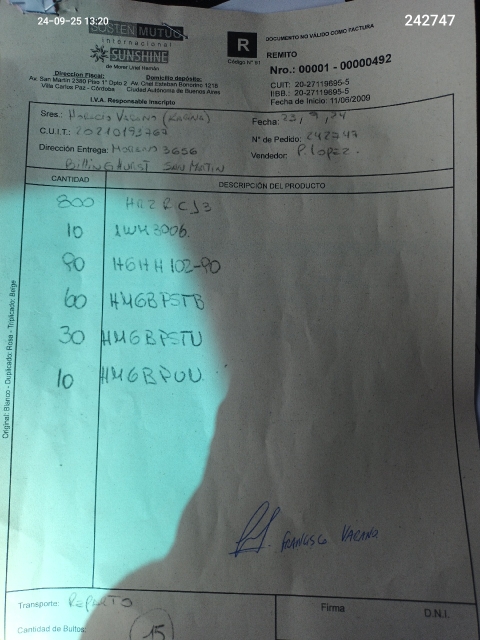 24-09-25 13:20
242747
SOSTEN MUTUO
internacional
SUNSHINE
de Morel Uriel Hernán
R
Código N° 91
DOCUMENTO NO VÁLIDO COMO FACTURA
REMITO
Nro.: 00001 - 00000492
CUIT: 20-27119695-5
IIBB.: 20-27119695-5
Fecha de Inicio: 11/06/2009
Direccion Fiscal:
Av. San Martin 2389 Piso 1° Dpto 2
Villa Carlos Paz - Córdoba
Domicilio depósito:
Av. Chel Esteban Bonorino 1218
Ciudad Autónoma de Buenos Aires
I.V.A. Responsable Inscripto
Sres.: Horacio Varano (Karina)
Fecha: 23, 9, 24
C.U.I.T.: 20210195767
N° de Pedido: 242747
Dirección Entrega: Moreno 3656
Vendedor: P. Lopez.
Billinghurst San Martin
CANTIDAD DESCRIPCIÓN DEL PRODUCTO
800
10
90 HGHH102-90
60 HMGBPSTB
30 HMGBPSTU
10 HMGBPUU
Francisco Varano
Original: Blanco - Duplicado: Rosa - Triplicado: Beige
Transporte: Reparto
Cantidad de Bultos: 15
Firma
D.N.I.